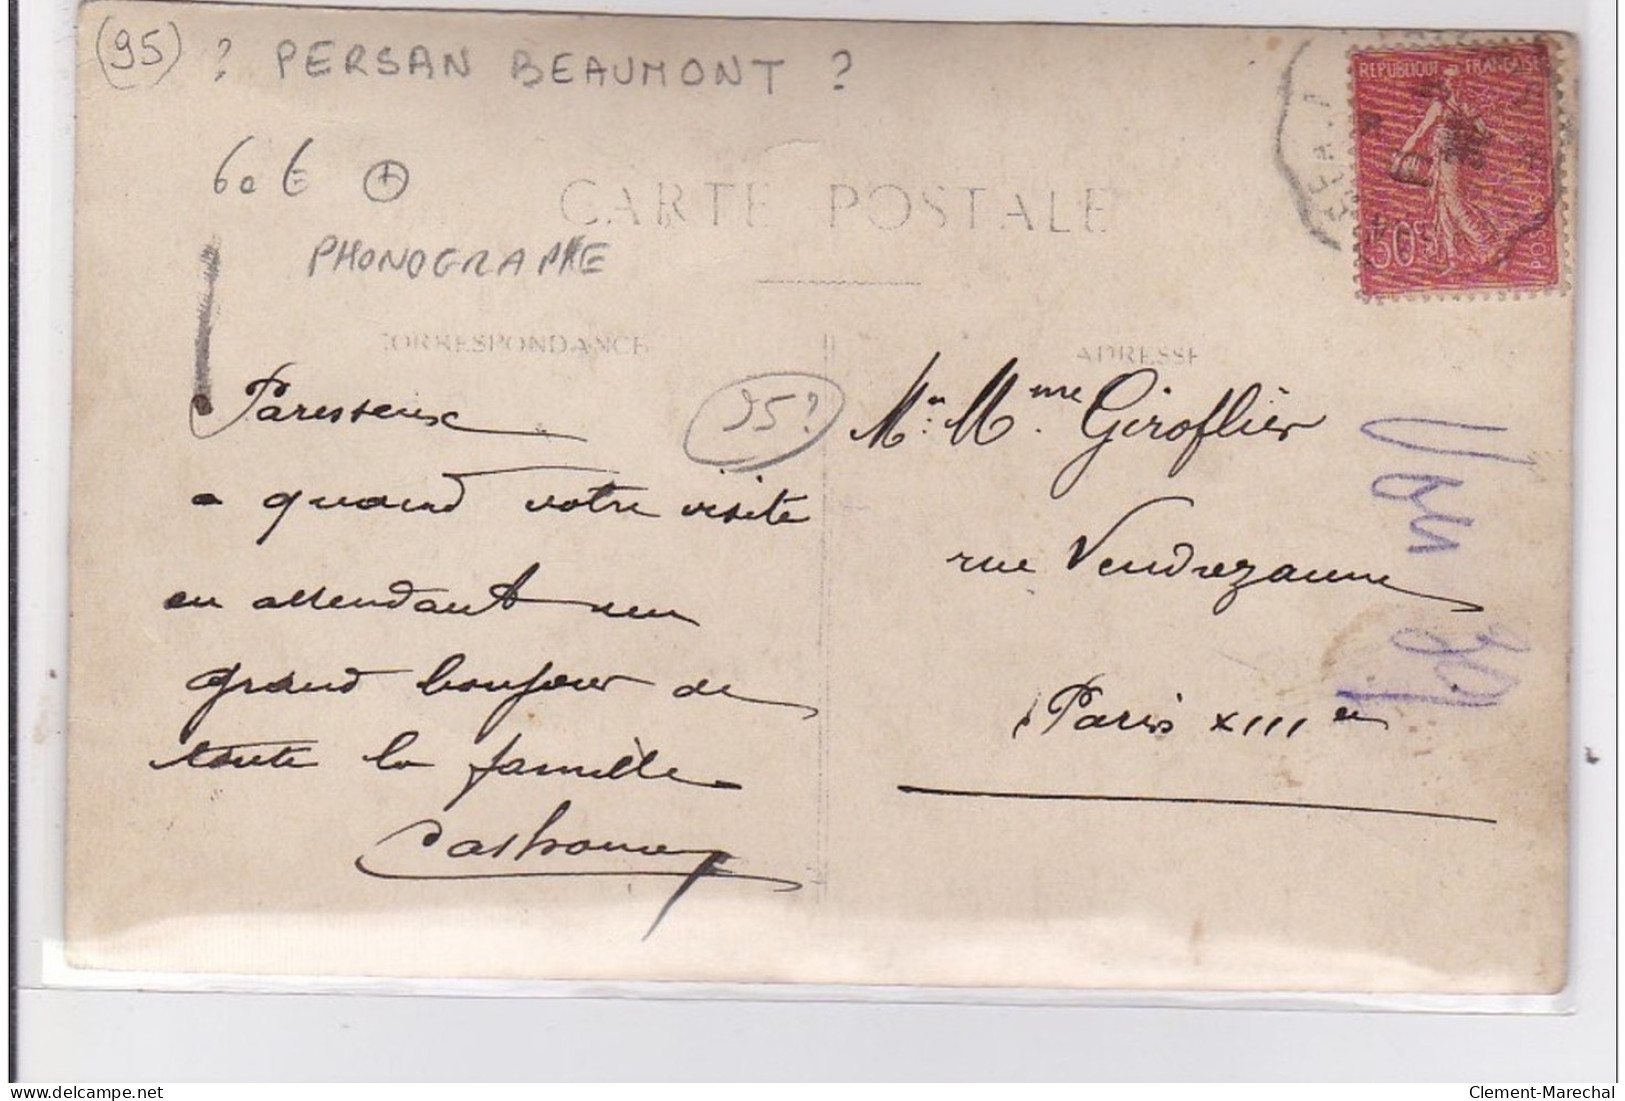 (95) ? PERSAN BEAUMONT ?
60 € +
PHONOGRAPHE
CARTE POSTALE
REPUBLIQUE FRANÇAISE
50c
CORRESPONDANCE
ADRESSE
95?
Paresseux
a quand votre visite
en attendant un
grand bonjour de
toute la famille
Mr. Mme. Giroflier
rue Vendrezanne
Paris XIIIe
delcampe.net
Clement-Marechal